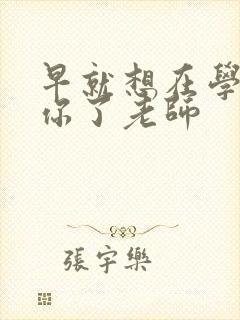 早就想在學
你了老師
張宇樂